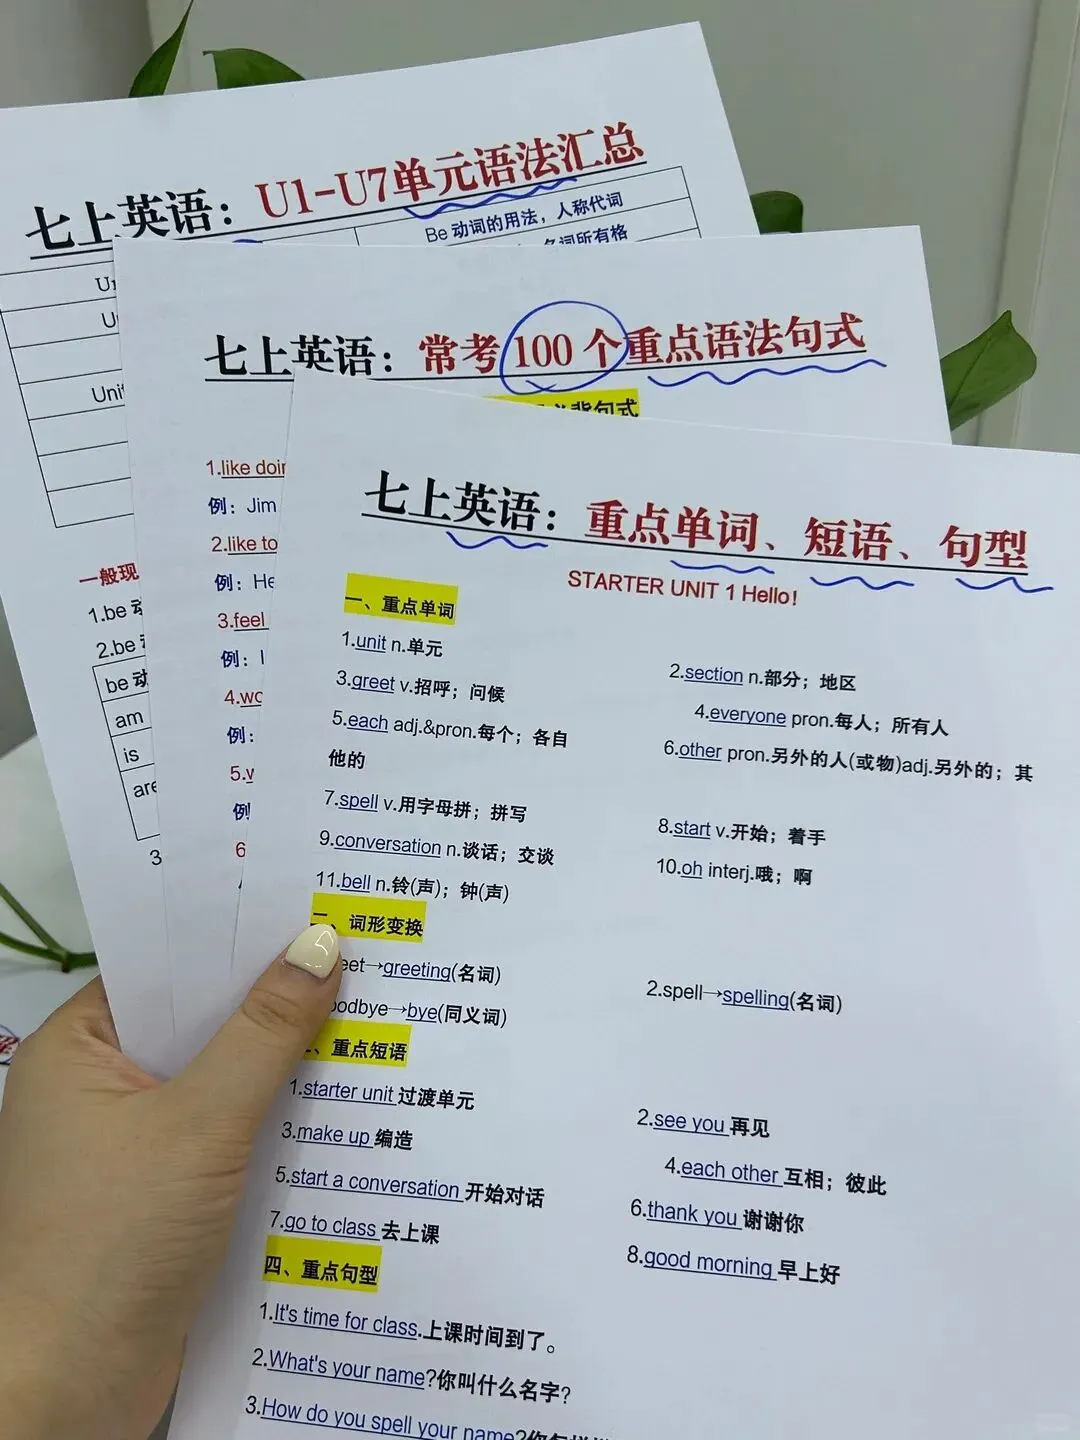 七上英语：U1-U7单元语法汇总
Be 动词的用法，人称代词
名词所有格
Unit
一般现
1.be 动
2.be 动
be 动
am
is
are
3
七上英语：常考 100 个重点语法句式
必背句式
1.like doin
例：Jim
2.like to
例：He
3.feel
例：I
4.wo
例：
5.w
例
6
七上英语：重点单词、短语、句型
STARTER UNIT 1 Hello！
一、重点单词
1.unit n.单元
2.section n.部分；地区
3.greet v.招呼；问候
4.everyone pron.每人；所有人
5.each adj.&pron.每个；各自
6.other pron.另外的人(或物)adj.另外的；其
他的
7.spell v.用字母拼；拼写
8.start v.开始；着手
9.conversation n.谈话；交谈
10.oh interj.哦；啊
11.bell n.铃(声)；钟(声)
二、词形变换
eet→greeting(名词)
2.spell→spelling(名词)
oodbye→bye(同义词)
、重点短语
1.starter unit 过渡单元
2.see you 再见
3.make up 编造
4.each other 互相；彼此
5.start a conversation 开始对话
6.thank you 谢谢你
7.go to class 去上课
8.good morning 早上好
四、重点句型
1.It's time for class.上课时间到了。
2.What's your name?你叫什么名字?
3.How do you spell your name?你怎样拼